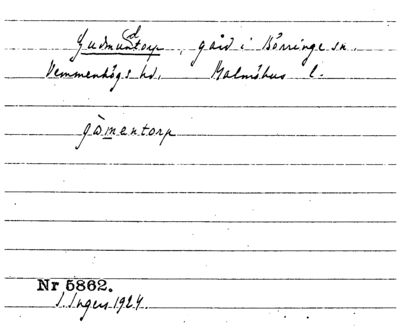 Gudmundtorp, gård i Börringe sn.
Vemmenhögs hd, Malmöhus l.
gòmentorp
Nr 5862.
I. Ingers 1924.